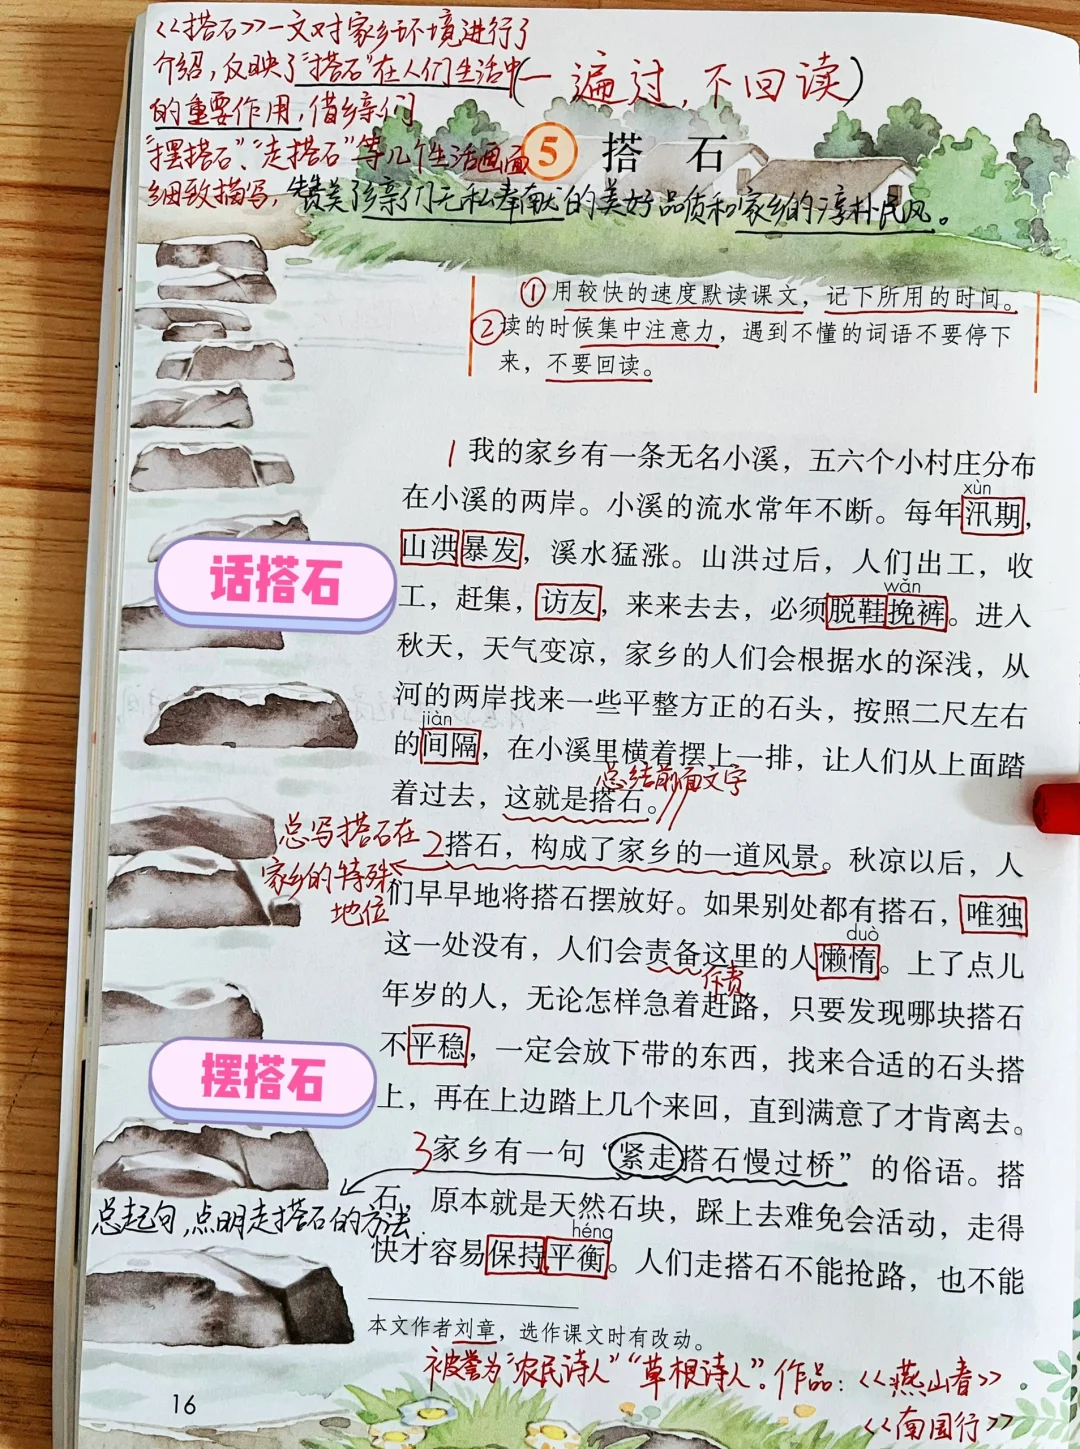 《《搭石》》一文对家乡环境进行了
介绍，反映了"搭石"在人们生活中
的重要作用，借乡亲们
"摆搭石"、"走搭石"等几个生活画面
细致描写，赞美了乡亲们无私奉献的美好品质和家乡的淳朴民风。
(一遍过，不回读)
5 搭石
①用较快的速度默读课文，记下所用的时间。
②读的时候集中注意力，遇到不懂的词语不要停下
来，不要回读。
1我的家乡有一条无名小溪，五六个小村庄分布
xùn
在小溪的两岸。小溪的流水常年不断。每年汛期，
山洪暴发，溪水猛涨。山洪过后，人们出工，收
wǎn
工，赶集，访友，来来去去，必须脱鞋挽裤。进入
秋天，天气变凉，家乡的人们会根据水的深浅，从
河的两岸找来一些平整方正的石头，按照二尺左右
jiàn
的间隔，在小溪里横着摆上一排，让人们从上面踏
总结前面文字
着过去，这就是搭石。
话搭石
2搭石，构成了家乡的一道风景。秋凉以后，人
总写搭石在
家乡的特殊
地位
们早早地将搭石摆放好。如果别处都有搭石，唯独
duò
这一处没有，人们会责备这里的人懒惰。上了点儿
斥责
年岁的人，无论怎样急着赶路，只要发现哪块搭石
不平稳，一定会放下带的东西，找来合适的石头搭
上，再在上边踏上几个来回，直到满意了才肯离去。
摆搭石
3家乡有一句"紧走搭石慢过桥"的俗语。搭
总起句，点明走搭石的方法.
石，原本就是天然石块，踩上去难免会活动，走得
héng
快才容易保持平衡。人们走搭石不能抢路，也不能
本文作者刘章，选作课文时有改动。
被誉为"农民诗人""草根诗人"。作品：《《燕山春》》.
《《南国行》》
16